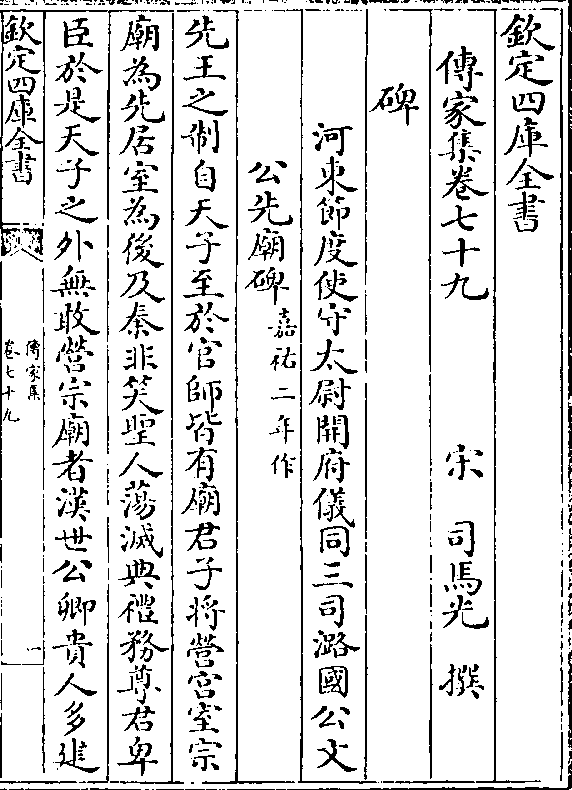 欽定四庫全書
傳家集卷七十九　宋　司馬光　撰
碑
河東節度使守太尉開府儀同三司潞國公文
公先廟碑嘉祐二年作
先王之制自天子至於官師皆有廟君子將營宫室宗
廟為先居室為後及秦非笑聖人蕩滅典禮務尊君卑
臣於是天子之外無敢營宗廟者漢世公卿貴人多建
欽定四庫全書
傳家集
卷七十九
一